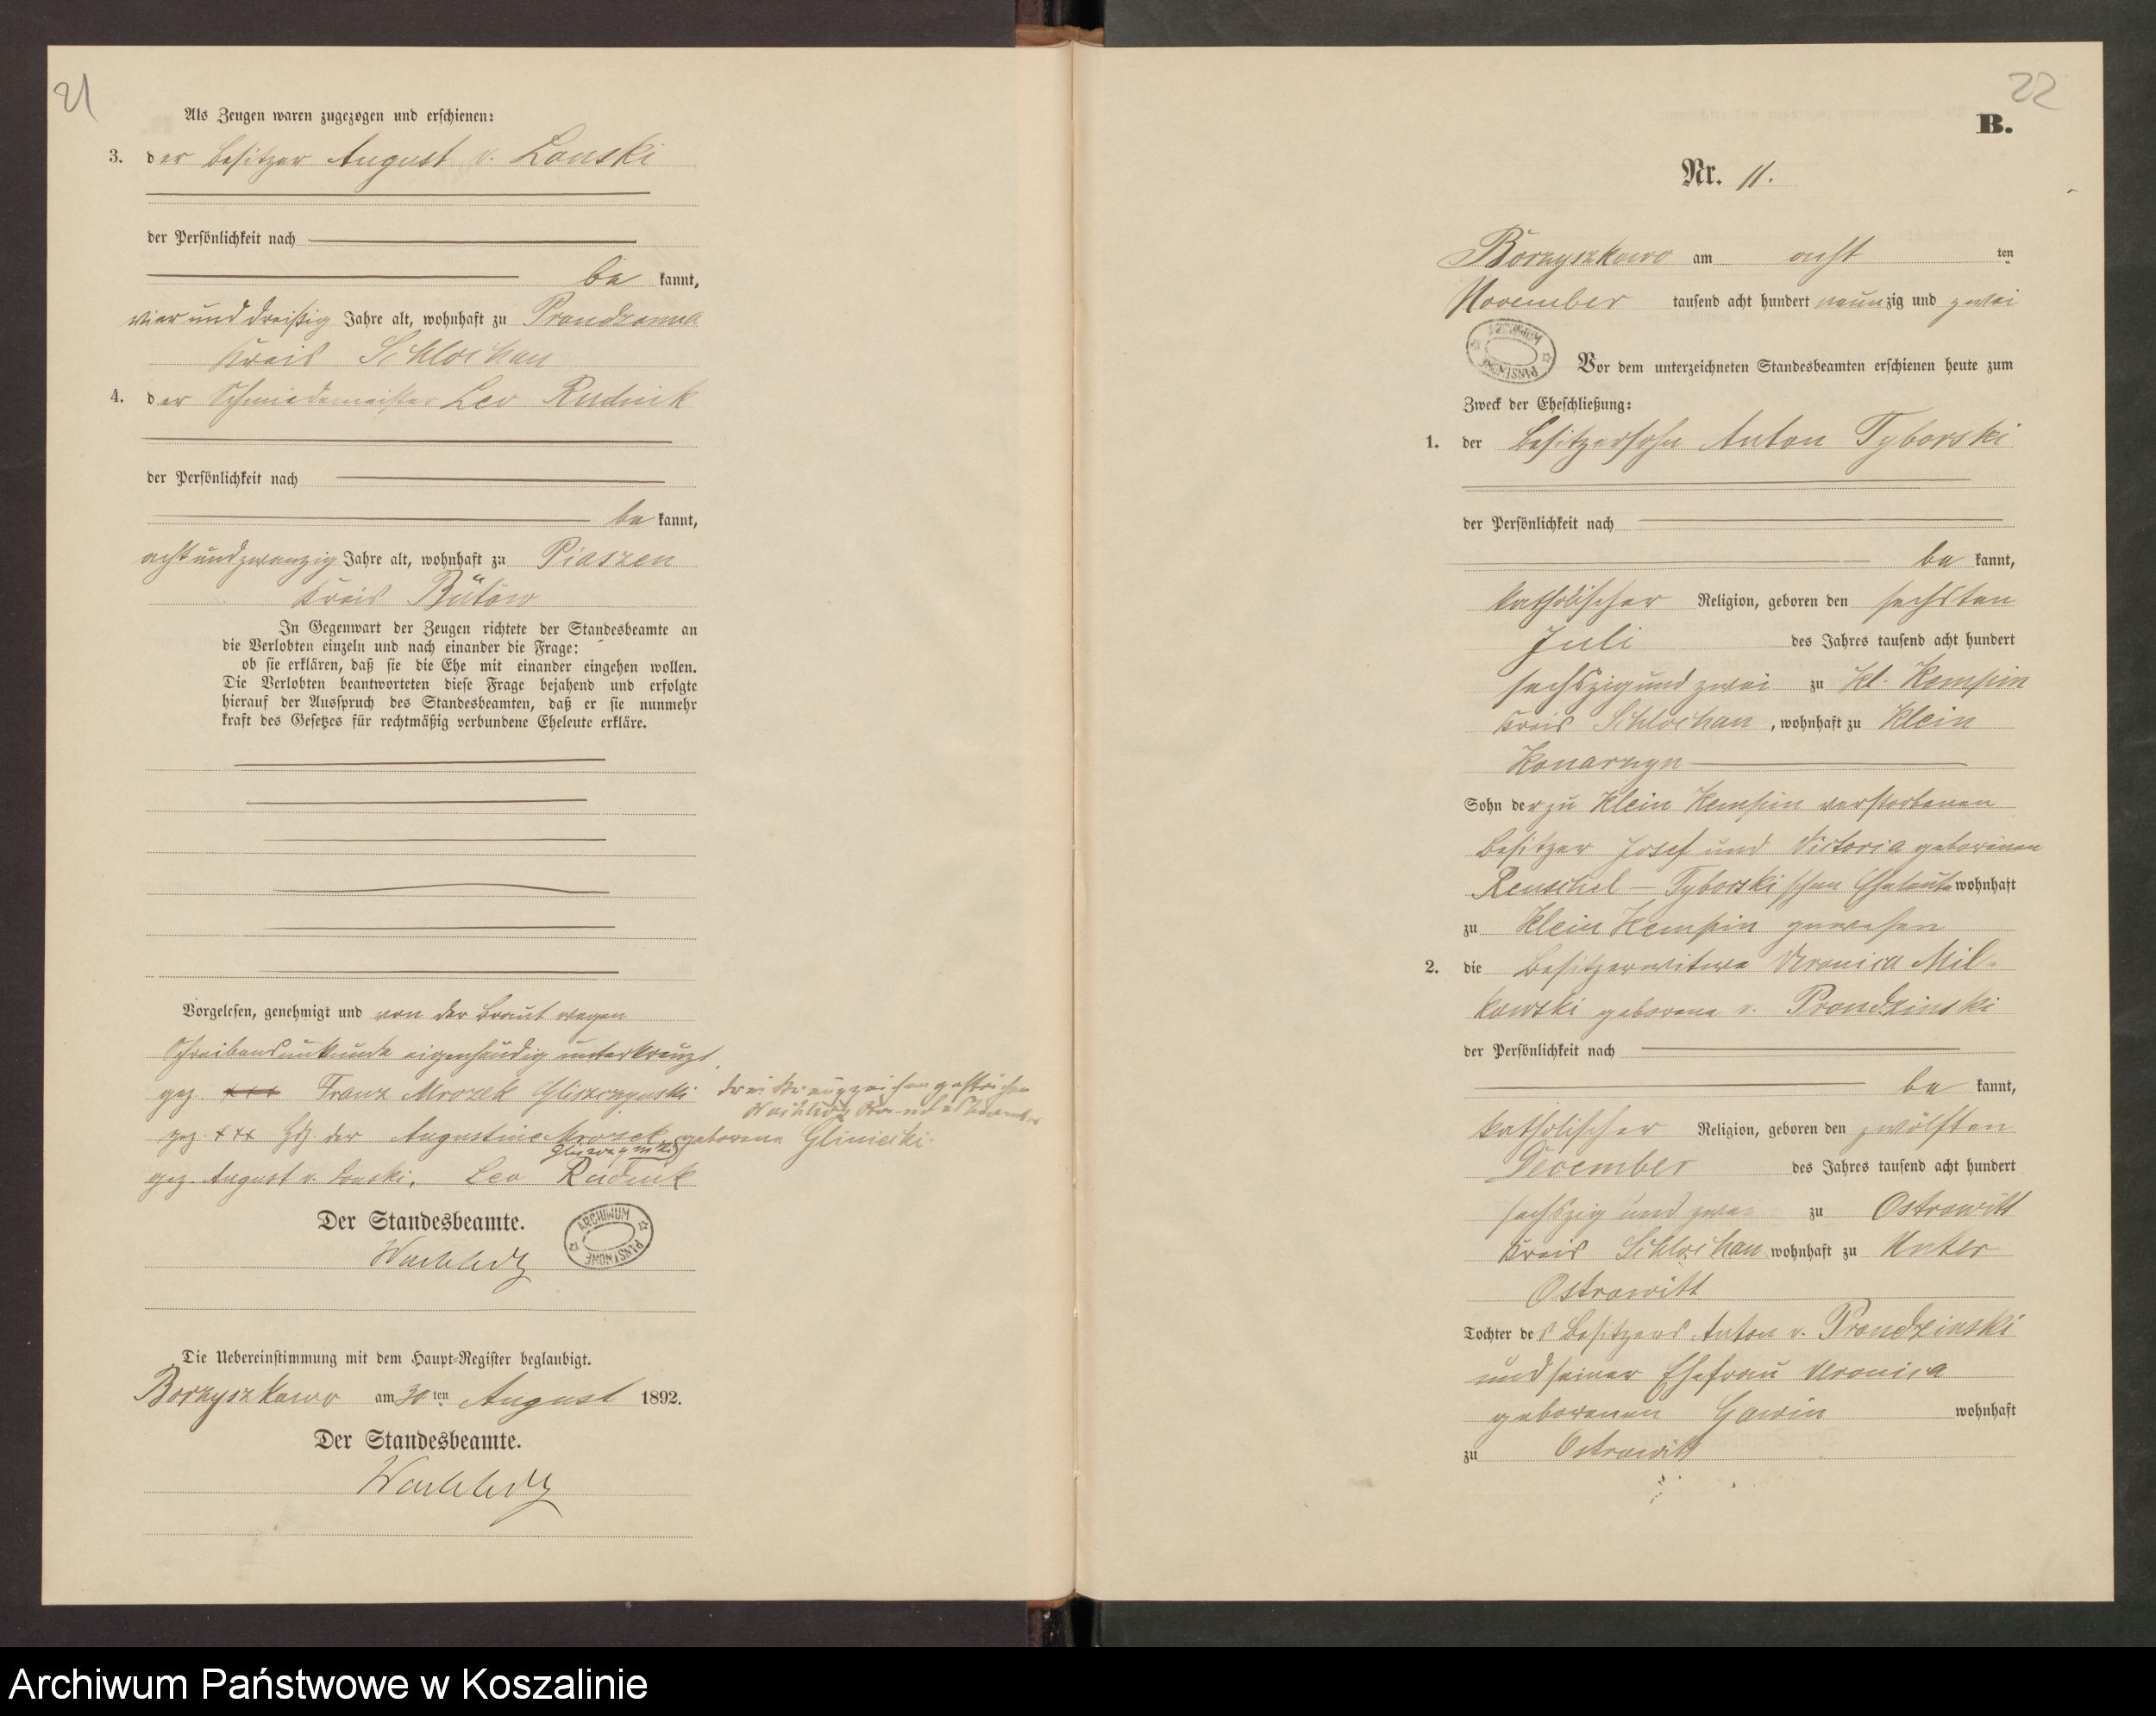 21
Als Zeugen waren zugezogen und erschienen:
3. der Besitzer August v. Lonski
der Persönlichkeit nach
be kannt,
vier und dreißig Jahre alt, wohnhaft zu Prondzonna
Kreis Schlochau
4. der Schmiedemeister Leo Rudnik
der Persönlichkeit nach
be kannt,
achtundzwanzig Jahre alt, wohnhaft zu Piaszen
Kreis Bütow
In Gegenwart der Zeugen richtete der Standesbeamte an
die Verlobten einzeln und nach einander die Frage:
ob sie erklären, daß sie die Ehe mit einander eingehen wollen.
Die Verlobten beantworteten diese Frage bejahend und erfolgte
hierauf der Ausspruch des Standesbeamten, daß er sie nunmehr
kraft des Gesetzes für rechtmäßig verbundene Eheleute erkläre.
Vorgelesen, genehmigt und von der Braut wegen
Schreibensunkunde eigenhändig unterkreuzt
gez. +++ Franz Mrozek Gliszczynski drei Kreuzzeichen gestrichen
Standesbeamter
gez. +++ Hdz. der Augustine Mrozek geborene Glinicki.
Gliszczynski
gez. August v. Lonski. Leo Rudnik
Der Standesbeamte.
ARCHIWUM PAŃSTWOWE
Die Uebereinstimmung mit dem Haupt-Register beglaubigt.
Borzyszkowo am 30ten August 1892.
Der Standesbeamte.
22
B.
Nr. 11.
Borzyszkowo am acht ten
November tausend acht hundert neunzig und zwei
ARCHIWUM PAŃSTWOWE
Vor dem unterzeichneten Standesbeamten erschienen heute zum
Zweck der Eheschließung:
1. der Besitzersohn Anton Tyborski
der Persönlichkeit nach
be kannt,
katholischer Religion, geboren den sechsten
Juli des Jahres tausend acht hundert
sechszig und zwei zu Kl. Kempin
Kreis Schlochau, wohnhaft zu Klein
Konarzyn
Sohn der zu Klein Kempin verstorbenen
Besitzer Josef und Victoria geborenen
Renschel - Tyborski'schen Eheleute wohnhaft
zu Klein Kempin gewesen
2. die Besitzerwitwe Veronica Mil-
kowski geborene v. Prondzinski
der Persönlichkeit nach
be kannt,
katholischer Religion, geboren den zwölften
December des Jahres tausend acht hundert
sechszig und zwei zu Ostrowitt
Kreis Schlochau wohnhaft zu Unter
Ostrowitt
Tochter des Besitzers Anton v. Prondzinski
und seiner Ehefrau Veronica
geborenen Gawin wohnhaft
zu Ostrowitt
Archiwum Państwowe w Koszalinie